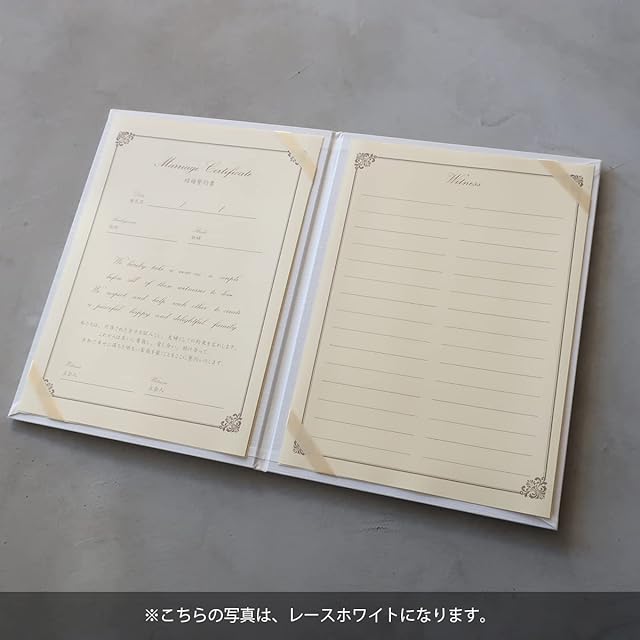 Marriage Certificate
結婚誓約書
Date
挙式日 / /
Bridegroom Bride
新郎 新婦
We hereby take a vow as a couple
before all of these witnesses to love
We respect and help each other to create
a peaceful happy and delightful family
Witness Witness
立会人 立会人
Witness
※こちらの写真は、レースホワイトになります。